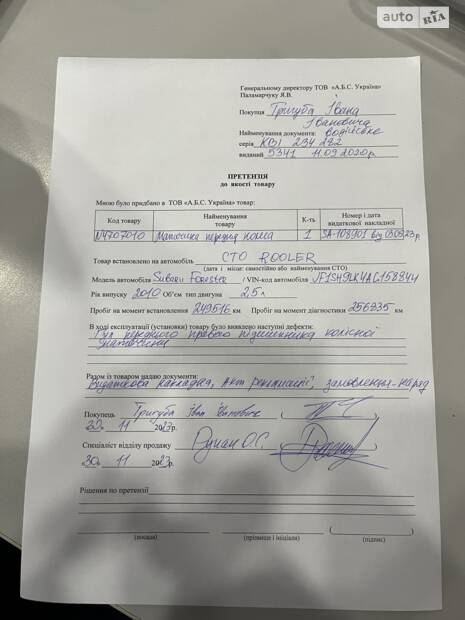 auto RIA
Генеральному директору ТОВ «А.Б.С. Україна»
Паламарчуку Я.В.
Покупця Григуба Івана
Івановича
Найменування документа: водійське
серія КВІ 234 282
виданий 5341 11.09.2020р.
ПРЕТЕНЗІЯ
до якості товару
Мною було придбано в ТОВ «А.Б.С. Україна» товар:
Код товару Найменування товару К-ть Номер і дата видаткової накладної
N4707010 Маточина передня колеса 1 SA-108901 від 03.05.23р.
Товар встановлено на СТО ROOLER
(дата і місце: самостійно або найменування СТО)
Модель автомобіля Subaru Forester / VIN-код автомобіля JF1SH9LK4AG158844
Рік випуску 2010 Об'єм тип двигуна 2,5л
Пробіг на момент встановлення 249516 км Пробіг на момент діагностики 256335 км
В ході експлуатації (установки) товару було виявлено наступні дефекти:
Гул переднього правого підшипника колісної
маточини
Разом із товаром надаю документи:
Видаткова накладна, Акт рекламації, замовлення-наряд
Покупець Григуба Іван Іванович
30. 11 2023р.
Спеціаліст відділу продажу О.С.
30. 11 2023р.
Рішення по претензії
(посада) (прізвище і ініціали) (підпис)